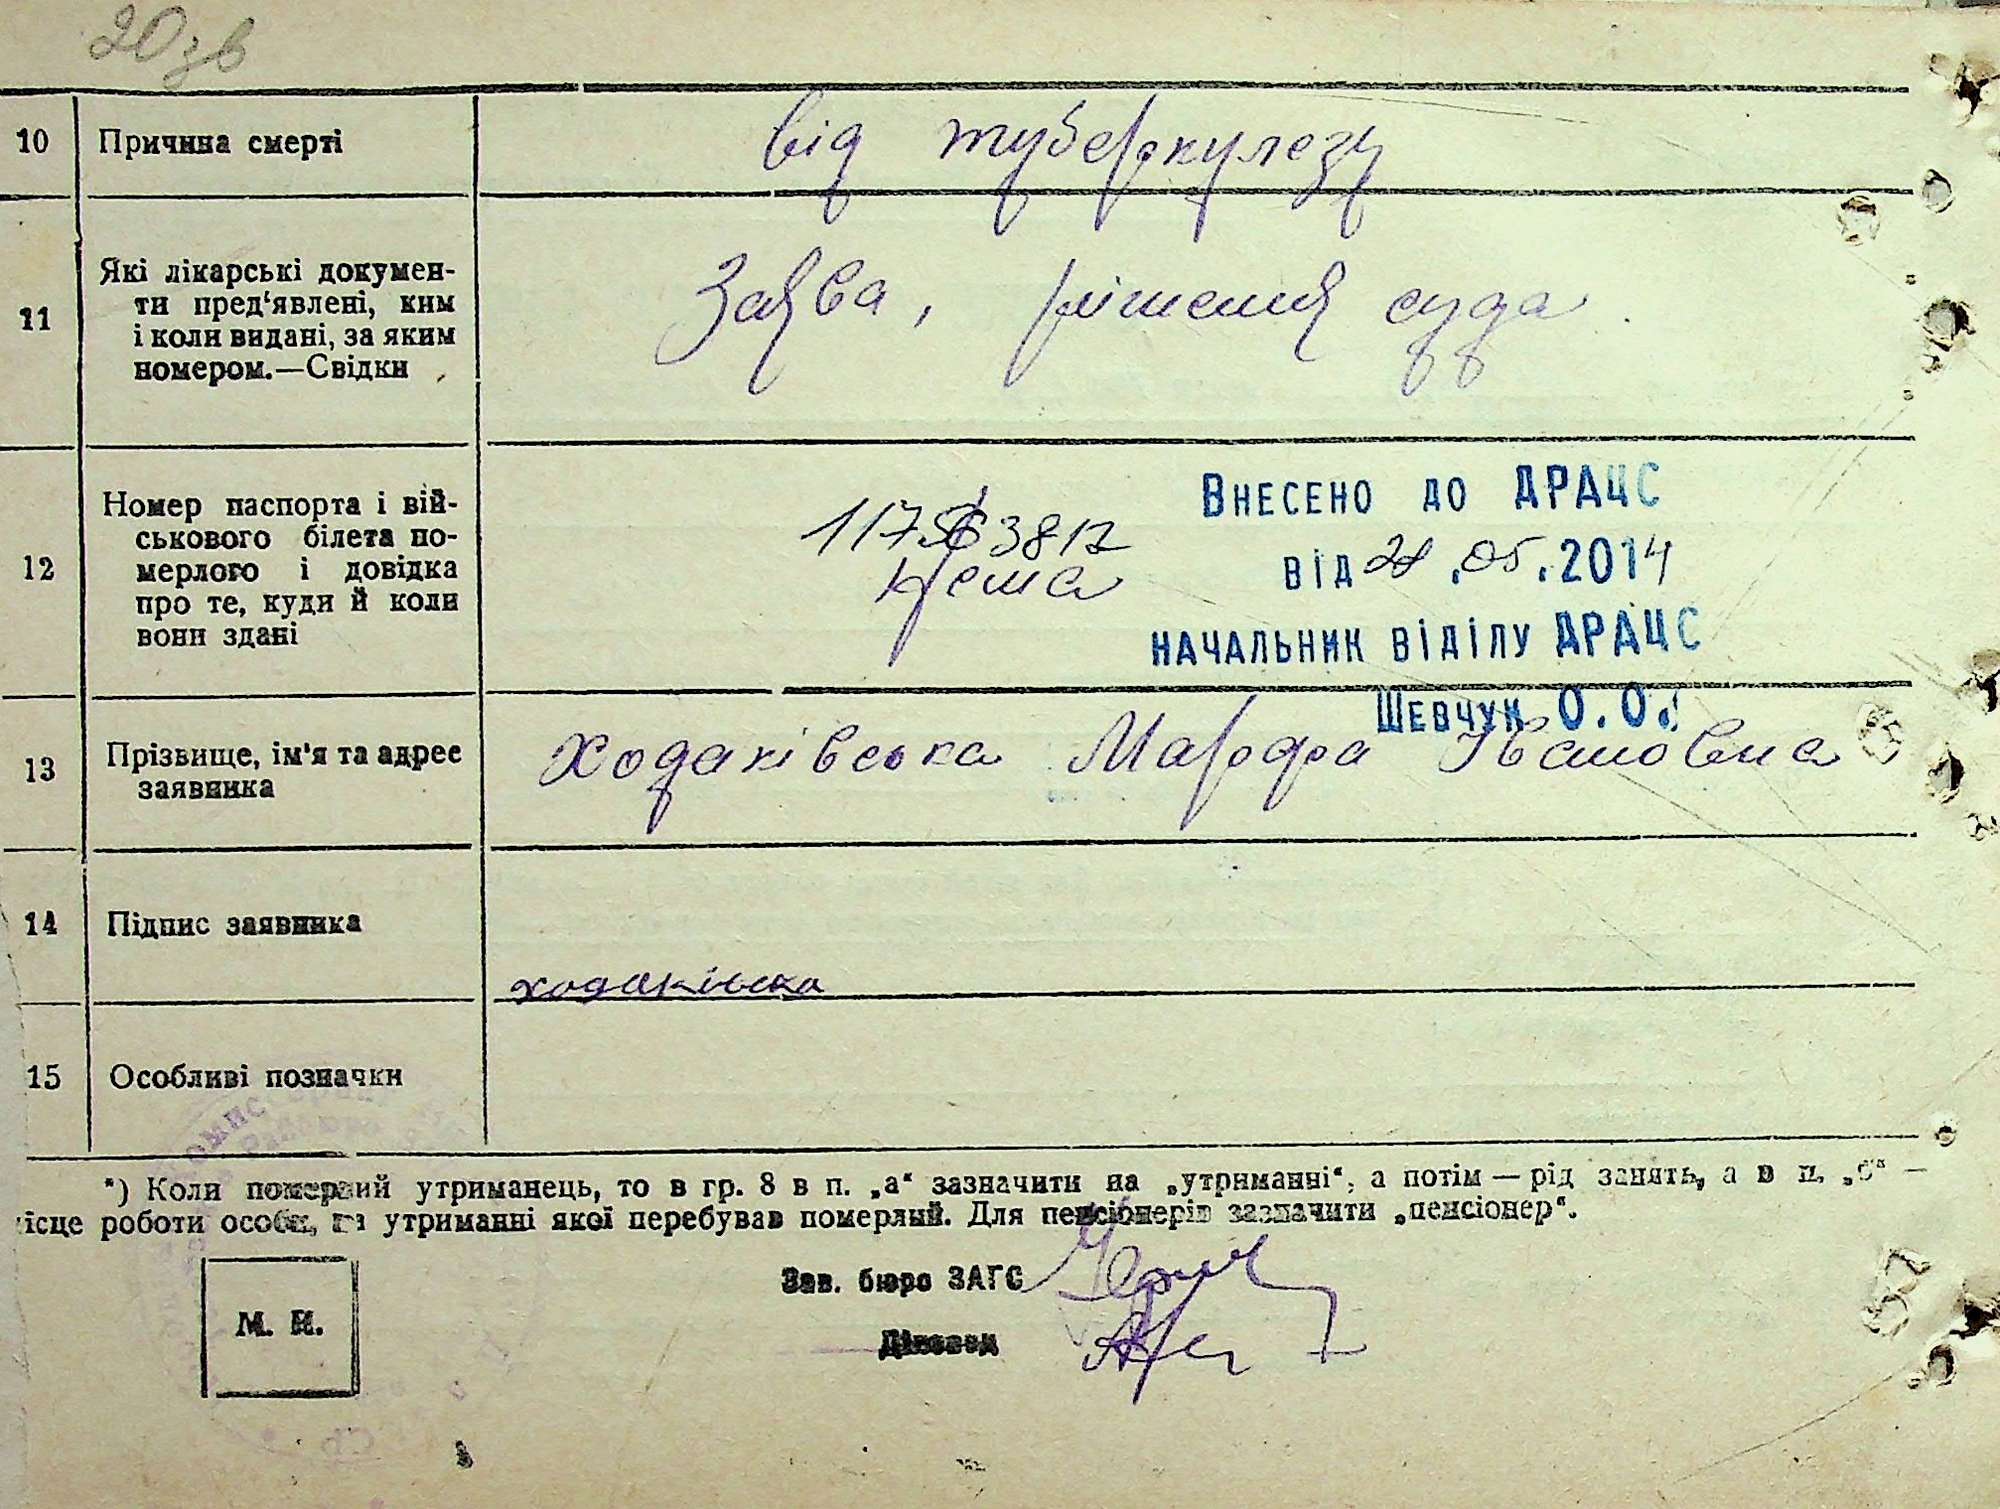 20 зв
10 Причина смерті від туберкулезу
11 Які лікарські докумен-
ти пред'явлені, ким
і коли видані, за яким
номером.—Свідки
Заява, рішения суда
12 Номер паспорта і вій-
ськового білета по-
мерлого і довідка
про те, куди й коли
вони здані
Нема
Внесено до ДРАЦС
від .05.2014
начальник відділу ДРАЦС
Шевчук О.О.
13 Прізвище, ім'я та адрес
заявника
Ходаківська Марфа Івановна
14 Підпис заявника
ходаківска
15 Особливі позначки
*) Коли померлий утриманець, то в гр. 8 в п. „а“ зазначити на „утриманні“, а потім — рід занять, а в п. „б“ —
місце роботи особи, на утриманні якої перебував померлий. Для пенсіонерів зазначити „пенсіонер“.
Зав. бюро ЗАГС
Діловод
М. П.